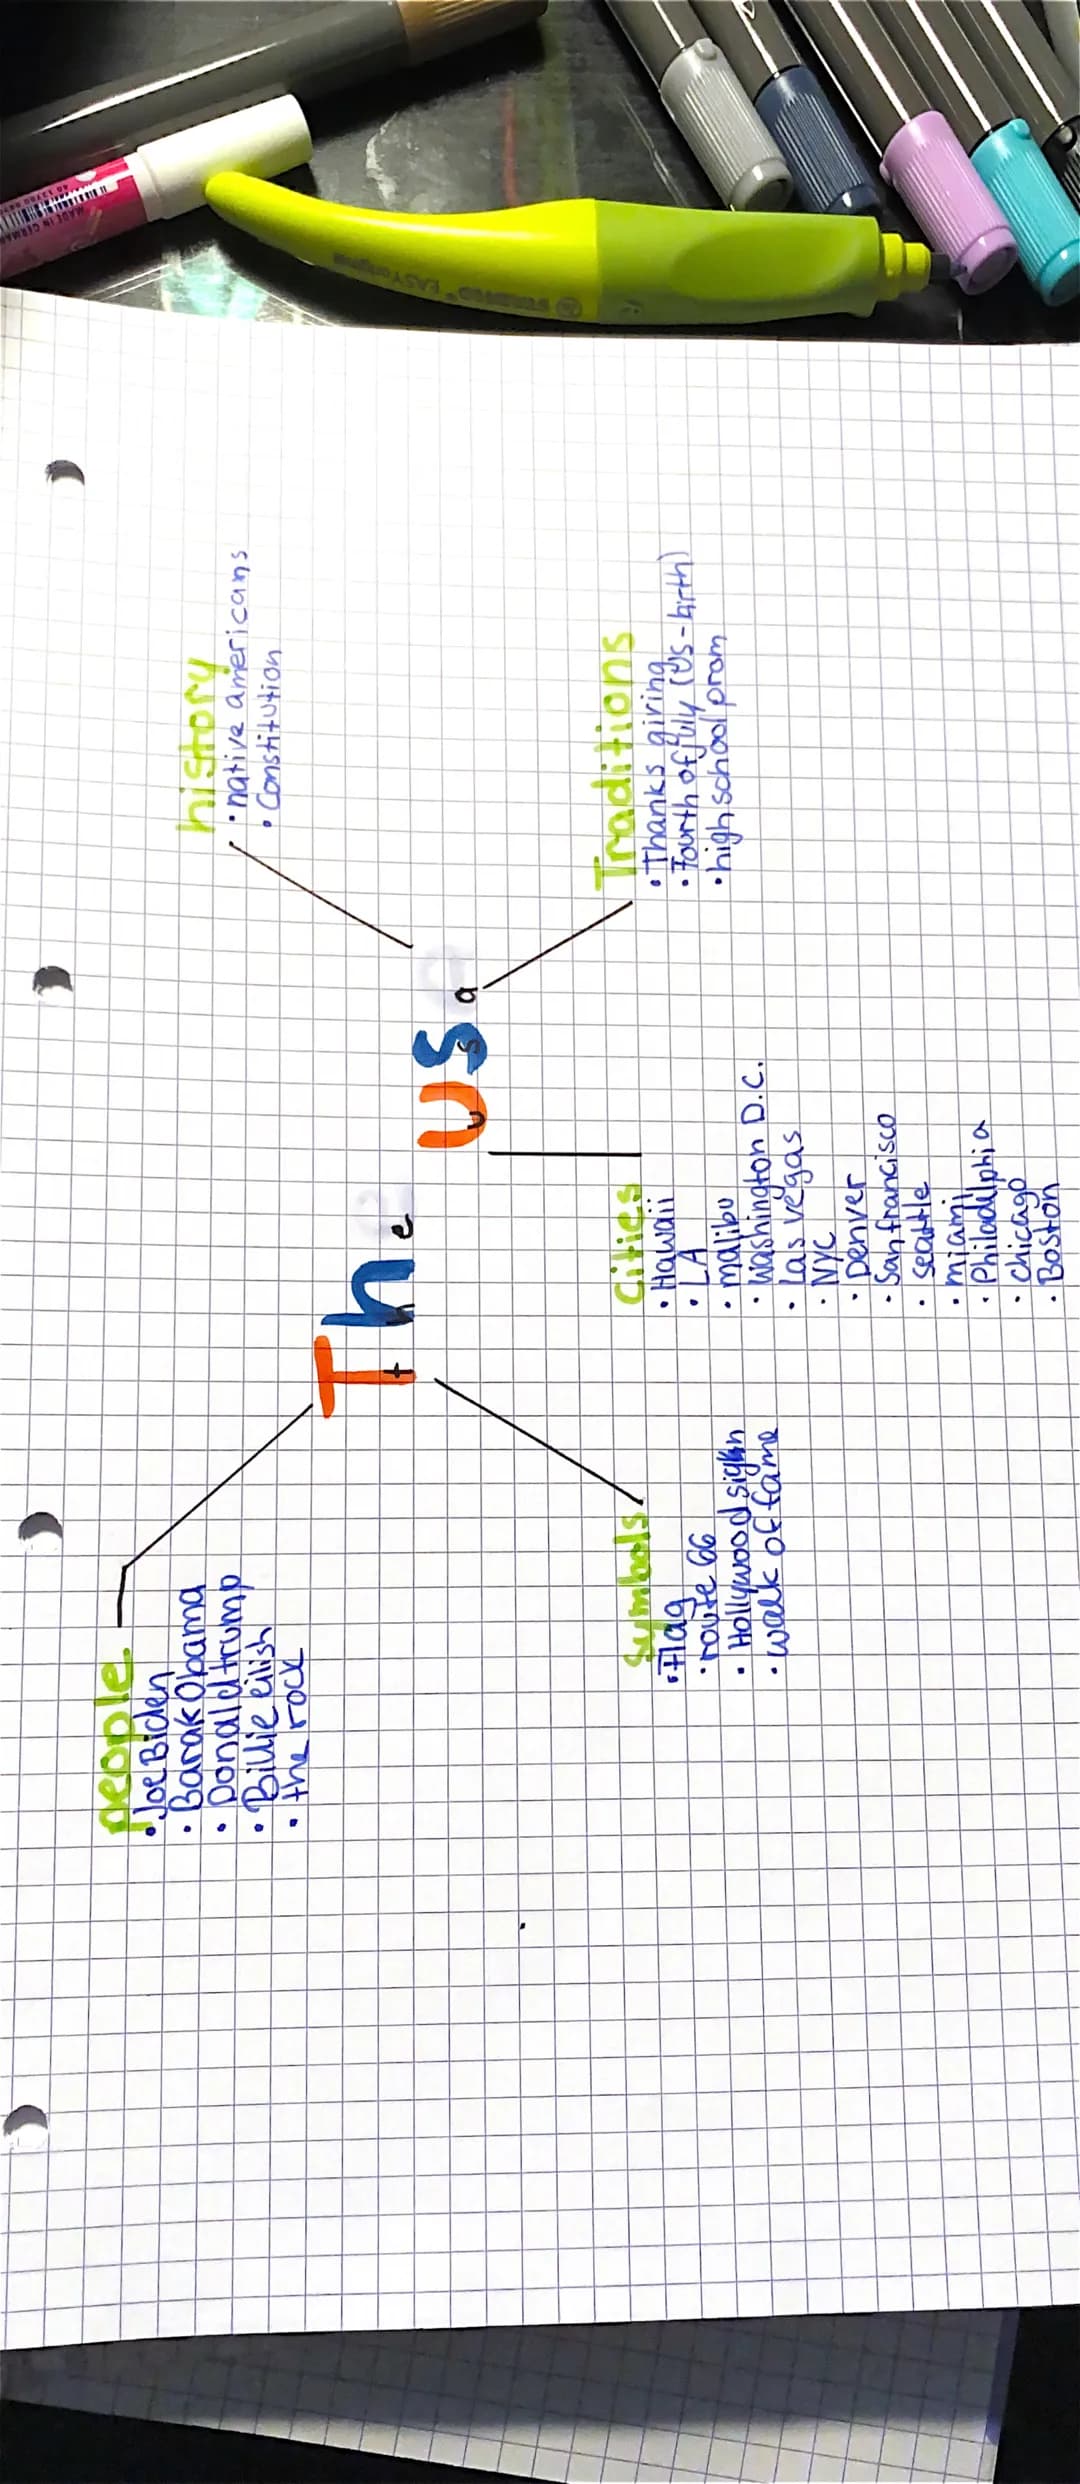 The USa
people
• Joe Biden
• Barak Obama
• Donald trump
• Billie eilish
• the rock
history
• native americans
• Constitution
Symbols
• Flag
• route 66
• Hollywood sign
• walk of fame
Cities
• Hawaii
• LA
• malibu
• Washington D.C.
• Las vegas
• NYC
• Denver
• San francisco
• seattle
• miami
• Philadelphia
• chicago
• Boston
Traditions
• Thanks giving
• Fourth of july (US-birth)
• high school prom
STABILO EASYoriginal
MADE IN GERMANY